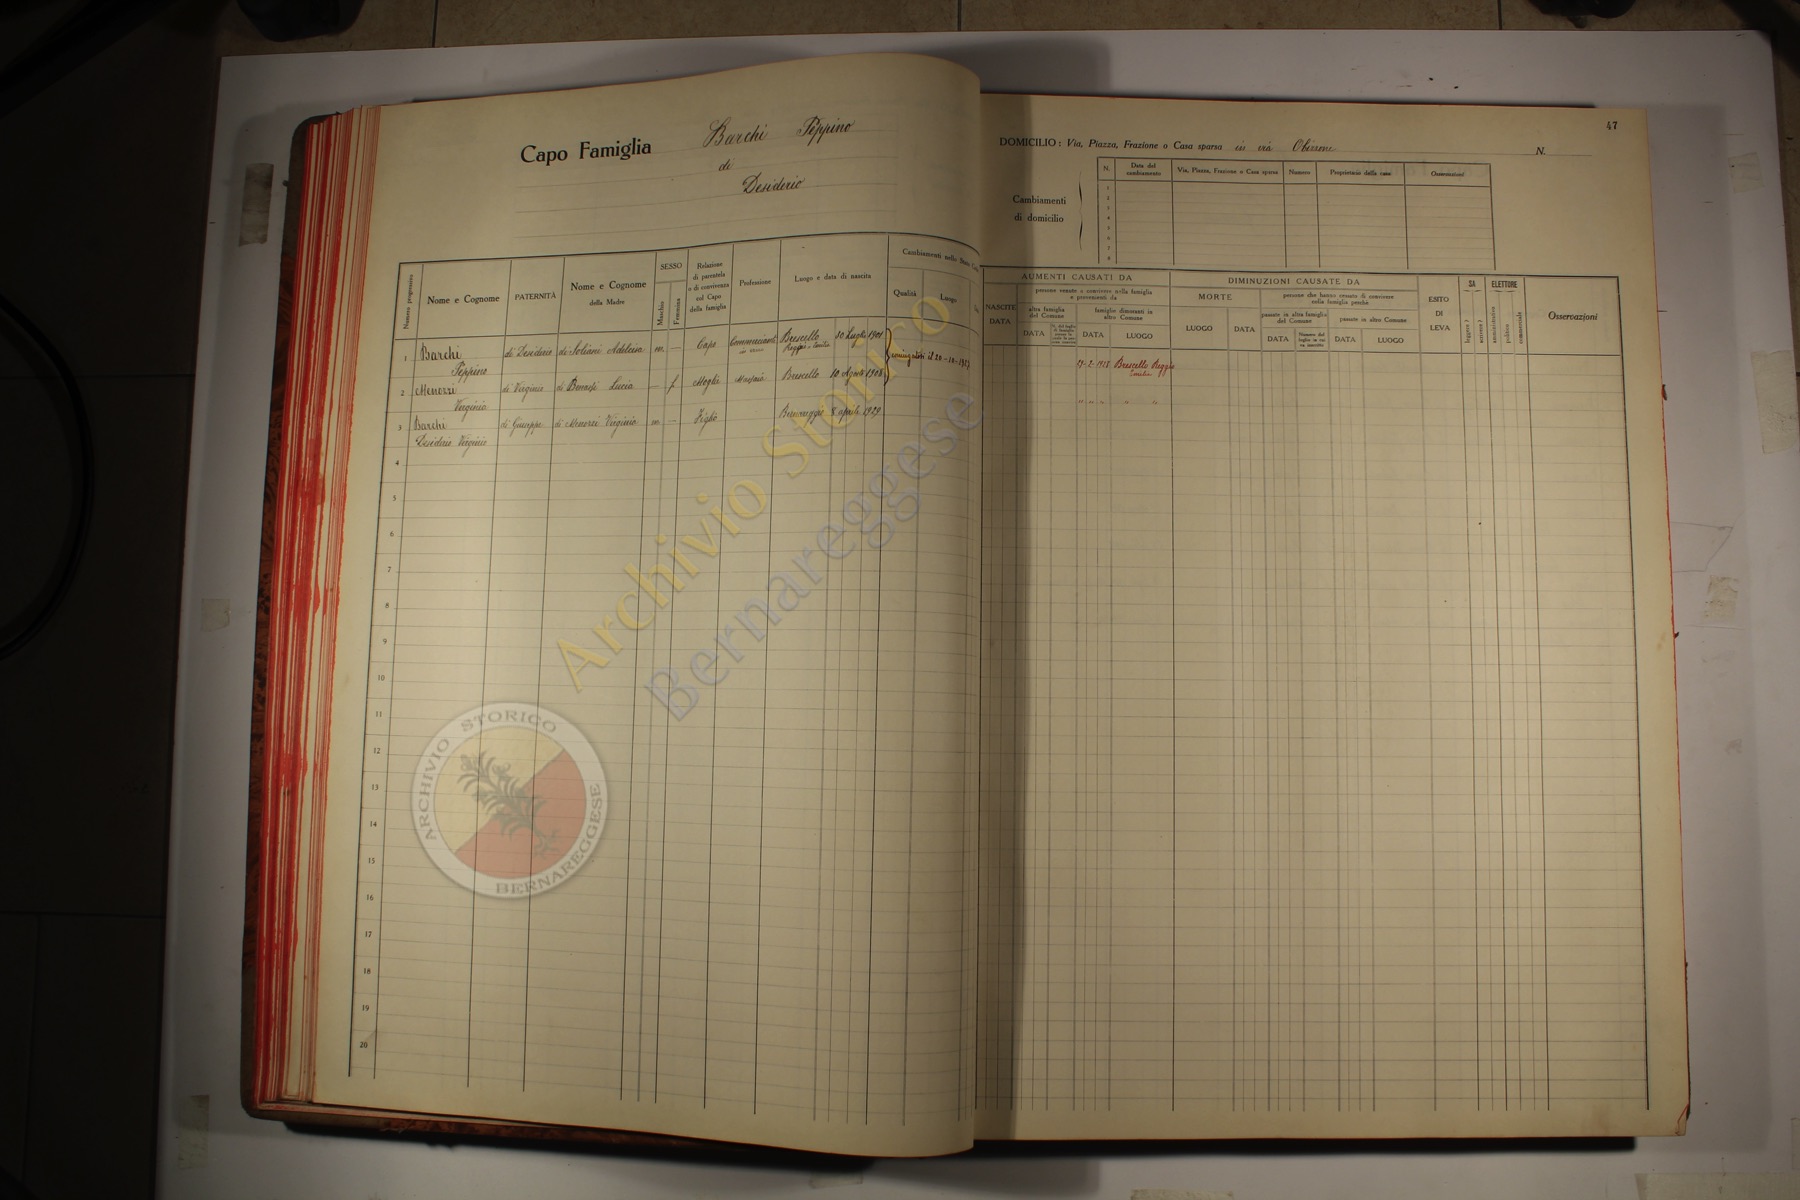 47
Capo Famiglia Barchi Peppino
di
Desiderio
DOMICILIO: Via, Piazza, Frazione o Casa sparsa in via
N.
Cambiamenti
di domicilio
N. Data del cambiamento Via, Piazza, Frazione o Casa sparsa Numero Proprietario della casa Osservazioni
1
2
3
4
5
6
7
8
Numero progressivo Nome e Cognome PATERNITÀ Nome e Cognome della Madre SESSO Maschio Femmina Relazione di parentela o di convivenza col Capo della famiglia Professione Luogo e data di nascita Cambiamenti nello Stato Qualità Luogo
NASCITE DATA AUMENTI CAUSATI DA persone venute a convivere nella famiglia e provenienti da altra famiglia del Comune DATA famiglie dimoranti in altro Comune DATA LUOGO
DIMINUZIONI CAUSATE DA MORTE LUOGO DATA persone che hanno cessato di convivere nella famiglia perchè passate in altra famiglia del Comune DATA passate in altro Comune DATA LUOGO
ESITO DI LEVA SA leggere? scrivere? ELETTORE amministrativo politico commerciale Osservazioni
1 Barchi Peppino di Desiderio di Soliani Adelcisa m. — Capo Commerciante Brescello Reggio-Emilia 30 Luglio 1901
il 20-10-1927
29-2-1928 Brescello Reggio Emilia
2 Menozzi Virginia di Virginio di Benassi Lucia — f Moglie Brescello 10 Agosto 1908
" " " " "
3 Barchi Desiderio Virginio di Giuseppe di Menozzi Virginia m — Figlio Bernareggio 8 aprile 1929
4
5
6
7
8
9
10
11
12
13
14
15
16
17
18
19
20
Archivio Storico
Bernareggese
ARCHIVIO STORICO
BERNAREGGESE